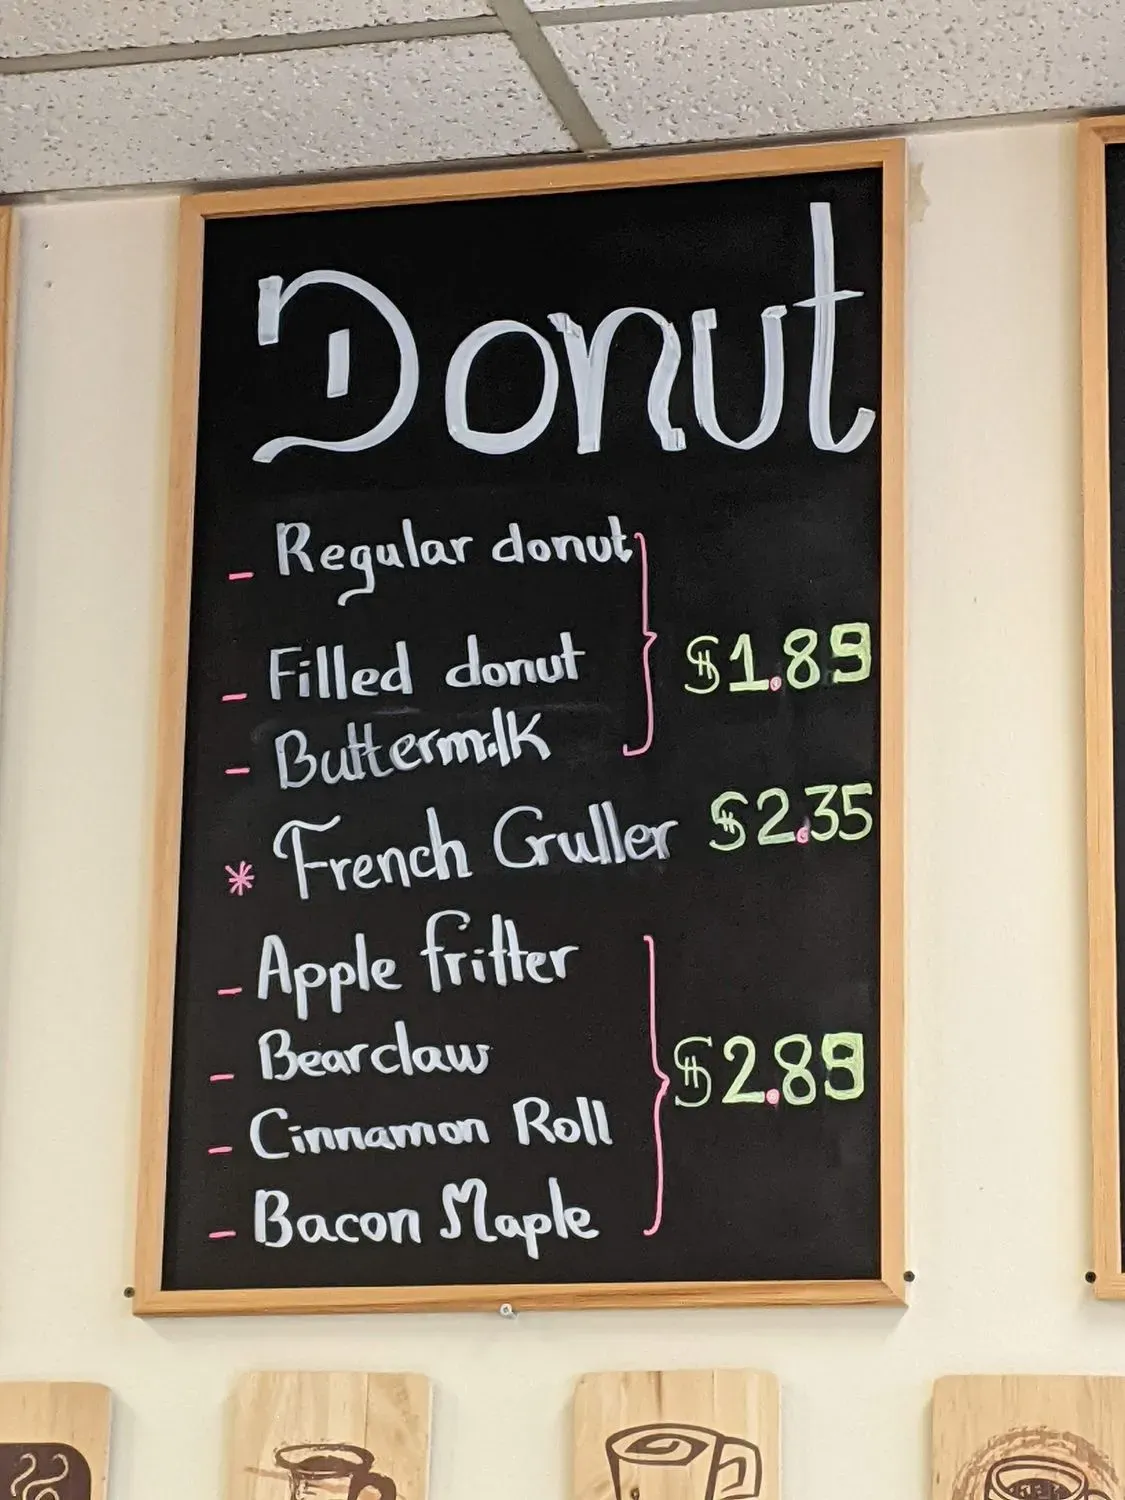 Donut
- Regular donut
- Filled donut
- Buttermilk
$1.89
* French Cruller $2.35
- Apple fritter
- Bearclaw
- Cinnamon Roll
- Bacon Maple
$2.89